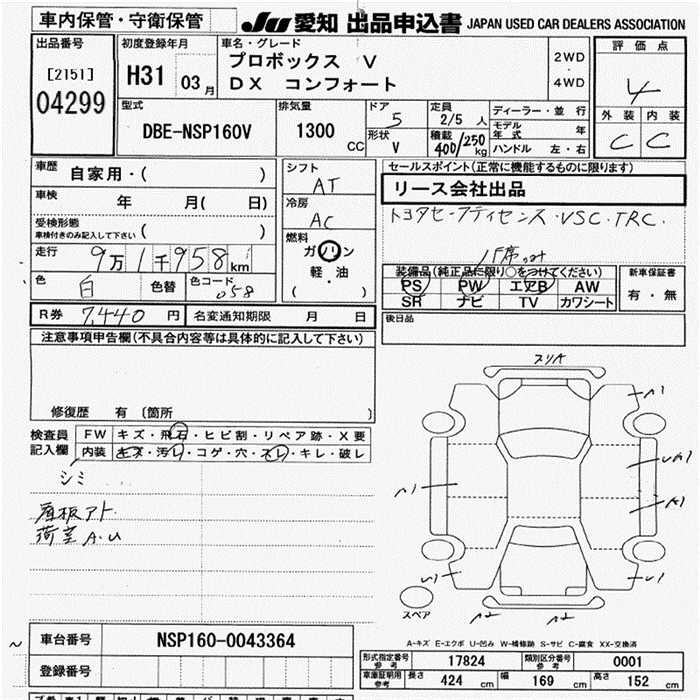 車内保管・守衛保管
JU 愛知 出品申込書 JAPAN USED CAR DEALERS ASSOCIATION
出品番号
[2151]
04299
初度登録年月
H31 03月
車名・グレード
プロボックス V
DX コンフォート
2WD
・
4WD
評価点
4
外装 内装
C C
型式
DBE-NSP160V
排気量
1300 CC
ドア
5
形状
V
定員
2/5 人
積載
400/250 kg
ディーラー・並行
モデル年式 年
ハンドル 左・右
車歴
自家用・( )
車検 年 月( 日)
受検形態
車検付きのみ記入して下さい ( )
走行 9万1千958km
色 白 色替 色コード 058
シフト
AT
冷房
AC
燃料
ガソリン
軽・油
( )
セールスポイント(正常に機能するものに限り)
リース会社出品
トヨタセーフティセンス・VSC・TRC・
装備品(純正品に限り○をつけてください)
PS PW エアB AW
SR ナビ TV カワシート
新車保証書
有・無
R券 7,440 円 名変通知期限 月 日
後日品
注意事項申告欄(不具合内容等は具体的に記入して下さい)
修復歴 有 [箇所 ]
検査員記入欄
FW キズ・飛石・ヒビ割・リペア跡・X要
内装 キズ・汚レ・コゲ・穴・スレ・キレ・破レ
シミ
床板アト
荷室A.U
スリA
A1
A1
A1
U1
U1
A2 A2
スペア
A-キズ E-エクボ U-凹み W-補修跡 S-サビ C-腐食 XX-交換済
車台番号 NSP160-0043364
登録番号
形式指定番号 参考 17824 類別区分番号 参考 0001
車庫証明用 参考 長さ 424 cm 幅 169 cm 高さ 152 cm